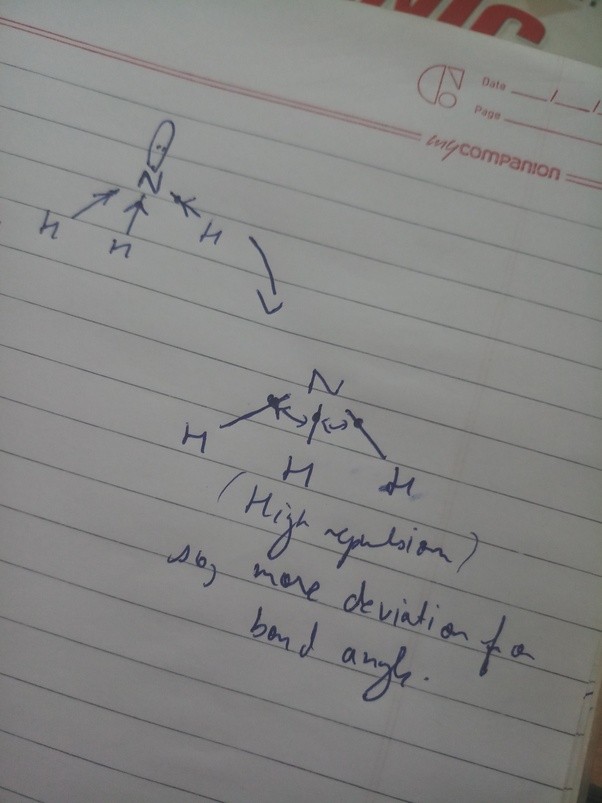 NIC
Date __/__/
Page
my companion
N
H H H
N
H H H
(High repulsion)
so, more deviation for
bond angle.